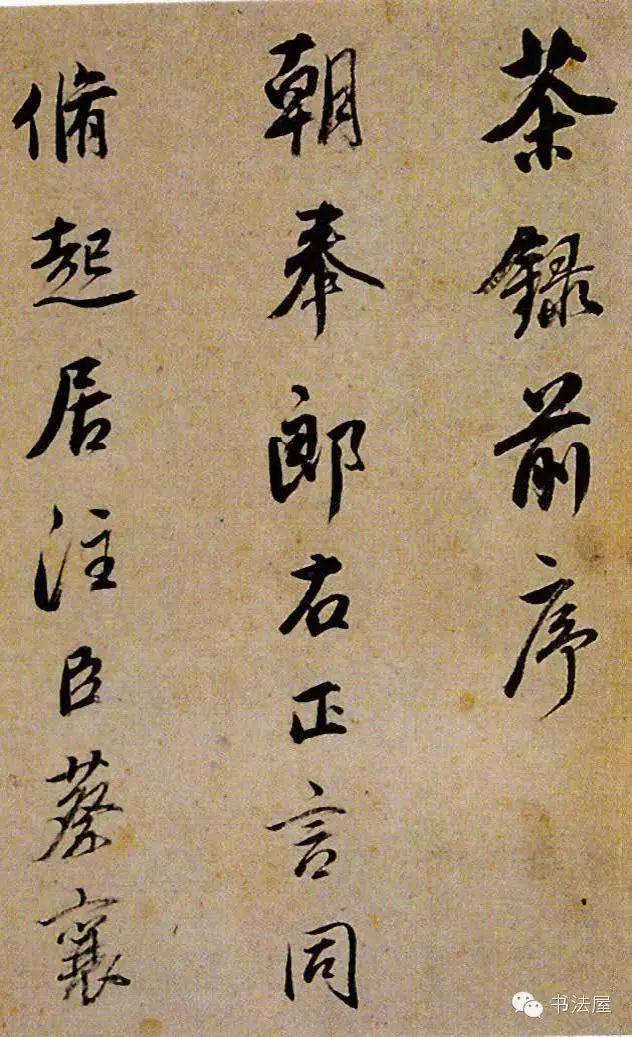 茶録前序
朝奉郎右正言同
脩起居注臣蔡襄
书法屋